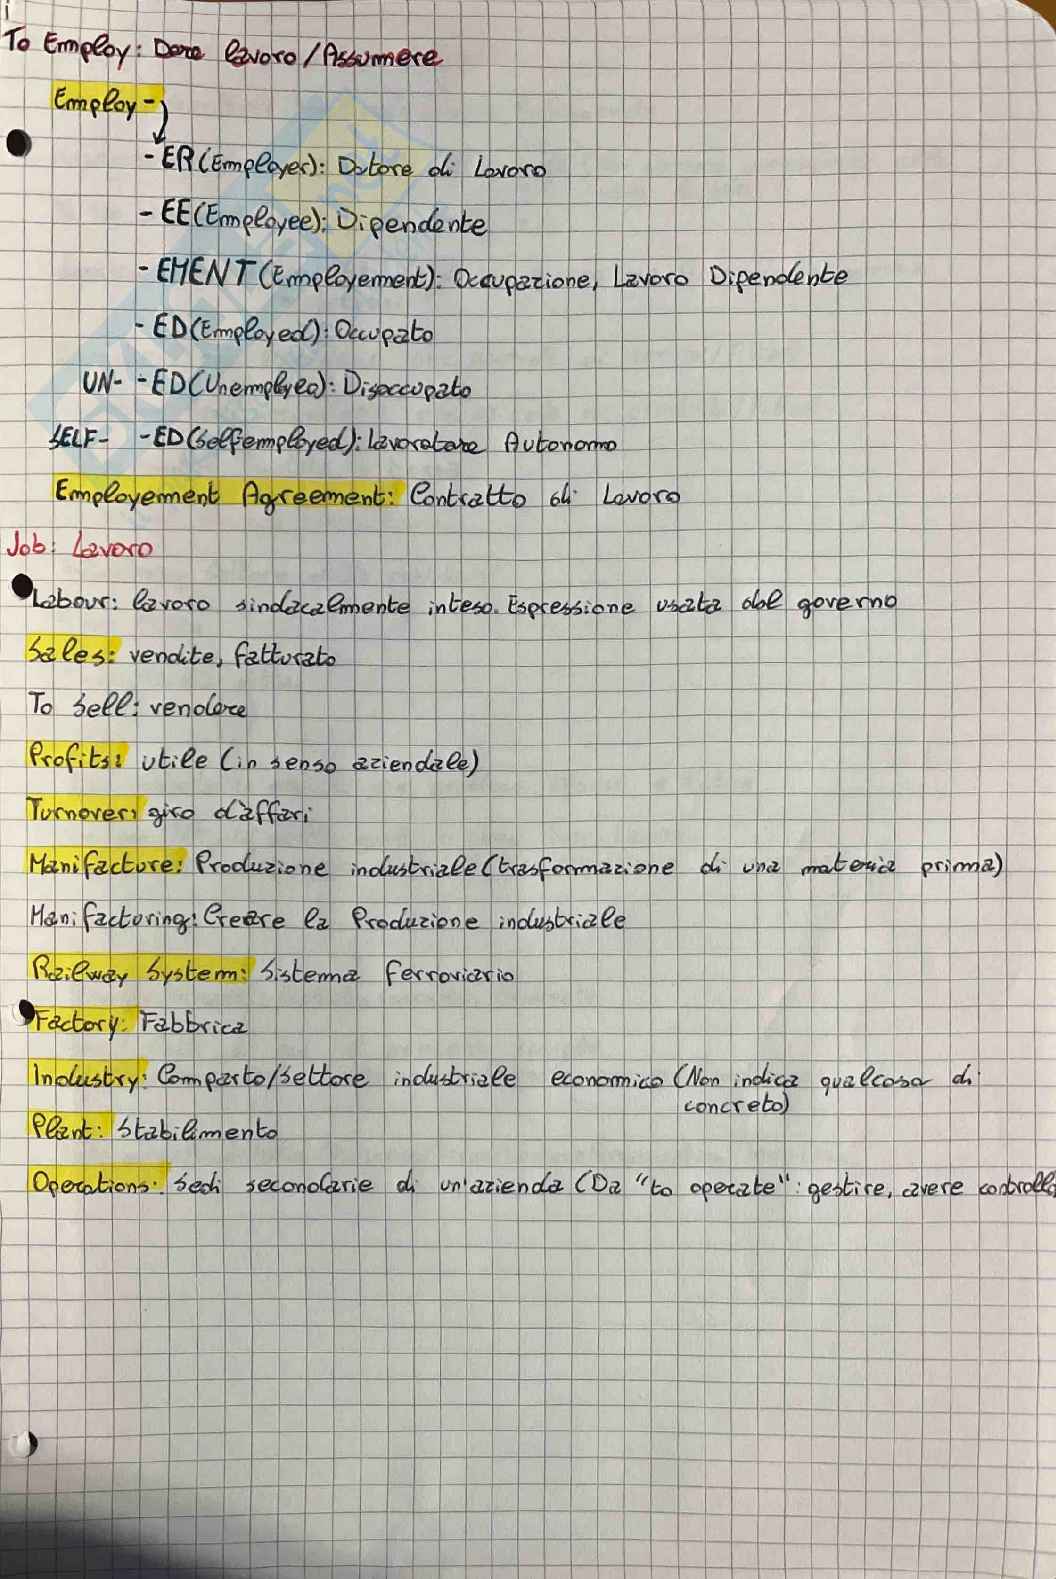 To Employ: Dare lavoro/Assumere
Employ-
- ER(Employer): Datore di Lavoro
- EE(Employee): Dipendente
- EMENT(Employement): Occupazione, Lavoro Dipendente
- ED(Employed): Occupato
UN- -ED(Unemplyed): Disoccupato
SELF- -ED(Selfemployed): Lavoratore Autonomo
Employement Agreement: Contratto di Lavoro
Job: Lavoro
Labour: lavoro sindacalmente inteso. Espressione usata dal governo
Sales: vendite, fatturato
To Sell: vendere
Profits: utile (in senso aziendale)
Turnover: giro d'affari
Manifacture: Produzione industriale (trasformazione di una materia prima)
Manifacturing: Creare la Produzione industriale
Railway System: Sistema Ferroviario
Factory: Fabbrica
Industry: Comparto/Settore industriale economico (Non indica qualcosa di
concreto)
Plant: Stabilimento
Operations: Sedi secondarie di un'azienda (Da "to operate": gestire, avere controllo